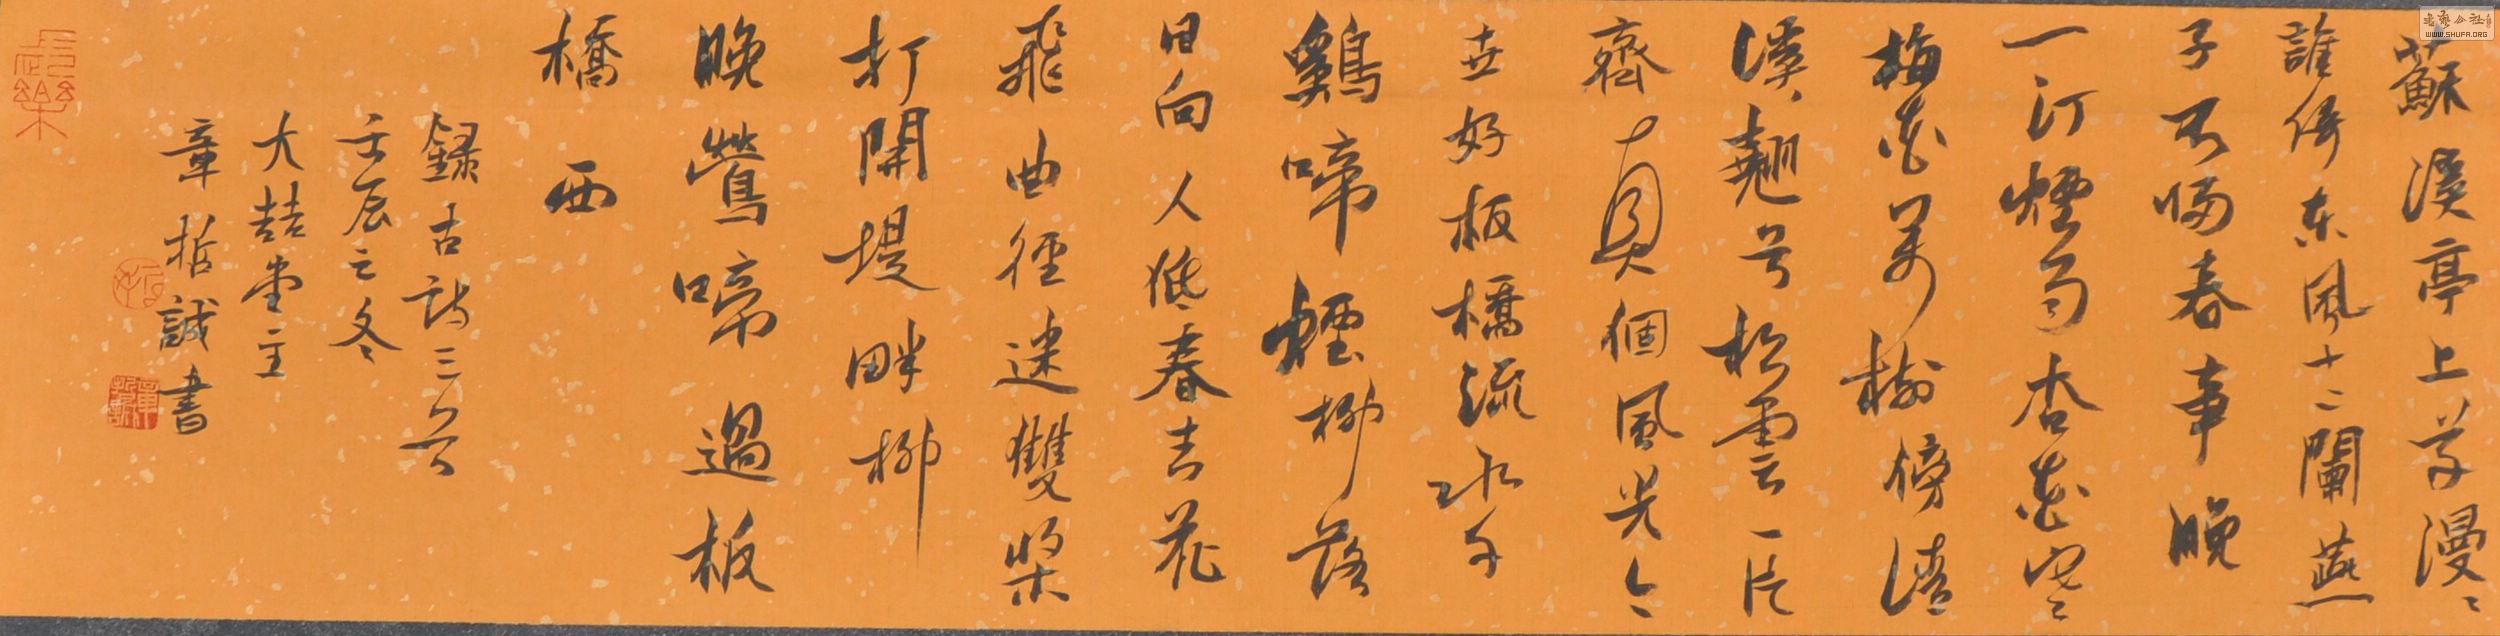 蘇溪亭上草漫漫
誰倚東風十二闌燕
子不歸春事晚
一汀煙雨杏花寒
梅花萬樹傍清
溪翹首松雲一片
齊真個風光今
世好板橋流水午
鷄啼煙柳落
日向人低春去花
飛曲徑迷雙槳
打開堤畔柳
晚鶯啼過板
橋西
錄古詩三首
壬辰之冬
大喆堂主
章哲誠書
長樂
WWW.SHUFA.ORG